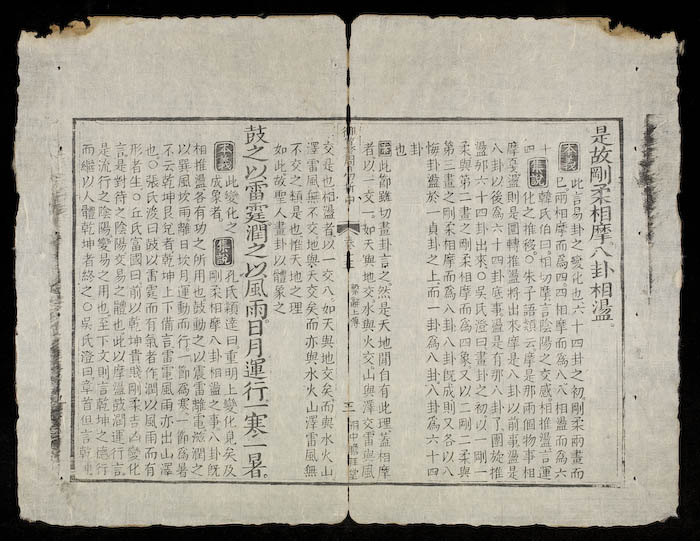 是故剛柔相摩八卦相盪
本義 此言易卦之變化也六十四卦之初剛柔兩畫而
已兩相摩而為四四相摩而為八八相盪而為六
十四 集說 韓氏伯曰相切摩言陰陽之交感相推盪言運
化之推移○朱子語類云摩是那兩個物事相
摩戛盪則是圜轉推盪將出來摩是八卦以前事盪是
八卦以後為六十四卦底事盪是有那八卦了團旋推
盪那六十四卦出來○吳氏澄曰畫卦之初以一剛一
柔與第二畫之剛柔相摩而為四象又以二剛二柔與
第三畫之剛柔相摩而為八卦八卦既成則又各以八
悔卦盪於一貞卦之上而一卦為八卦八卦為六十四
卦
也
案 此節雖切畫卦言之然是天地間自有此理蓋相摩
者以一交一如天與地交水與火交山與澤交雷與風
交是也相盪者以一交八如天與地交矣而與水火山
澤雷風無不交地與天交矣而亦與水火山澤雷風無
不交之類是也惟天地之理
如此故聖人畫卦以體象之
鼓之以雷霆潤之以風雨日月運行一寒一暑
本義 此變化之
成象者 集說 孔氏穎達曰重明上變化見矣及
剛柔相摩八卦相盪之事八卦既
相推盪各有功之所用也鼓動之以震雷離電滋潤之
以巽風坎雨離日坎月運動而行一節為寒一節為暑
不云乾坤艮兌者乾坤上下備言雷電風雨亦出山澤
也○張氏浚曰鼓以雷霆而有氣者作潤以風雨而有
形者生○丘氏富國曰前以乾坤貴賤剛柔吉凶變化
言是對待之陰陽交易之體也此以摩盪鼓潤運行言
是流行之陰陽變易之用也至下文則言乾坤之德行
而繼以人體乾坤者終之○吳氏澄曰章首但言乾坤